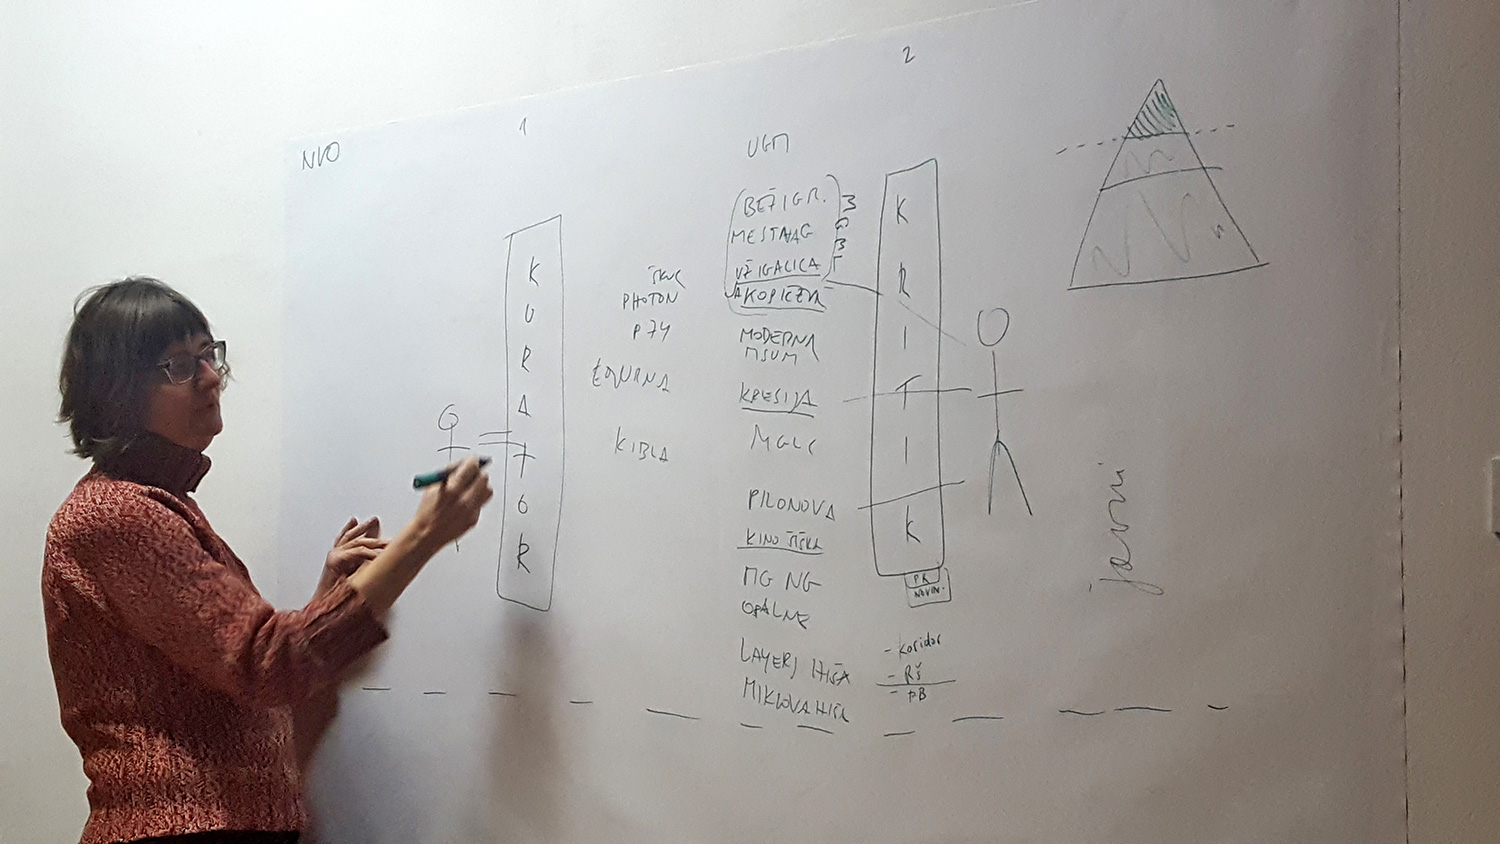 NVO
1
2
KURATOR
ŠKUC
PHOTON
P74
KIBLA
UGM
(BEŽIGR.
MESTNA G
VŽIGALICA
MGML
MODERNA
MSUM
KRESIJA
MGLC
PILONOVA
KINO ŠIŠKA
MG NG
LAYERJ HIŠA
MIKLOVA HIŠA
KRITIK
PR
NOVIN.
- koridor
- RŠ
- PB
javni